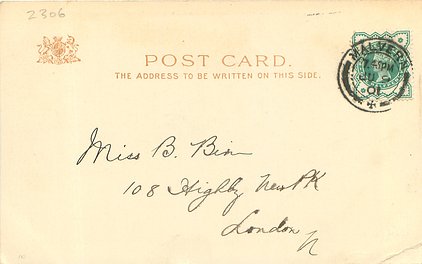 2306
POST CARD.
THE ADDRESS TO BE WRITTEN ON THIS SIDE.
MALVERN
JU
01
Miss B. Binn
108 Highby New PK
London
N